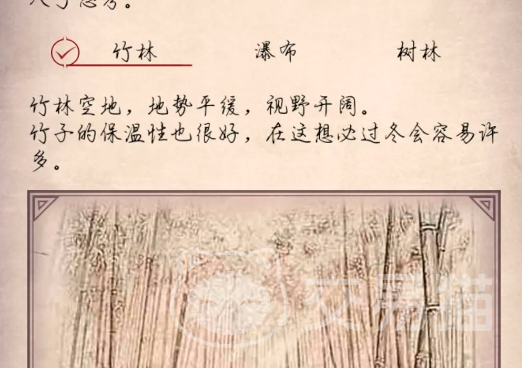 竹林 瀑布 树林
竹林空地，地势平缓，视野开阔。
竹子的保温性也很好，在这想必过冬会容易许
多。
交易猫